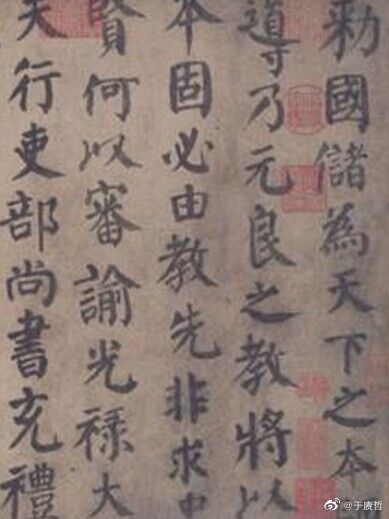 勅國儲為天下之本
導乃元良之教將以
本固必由教先非求
賢何以審諭光祿大
夫行吏部尚書充禮
@于赓哲